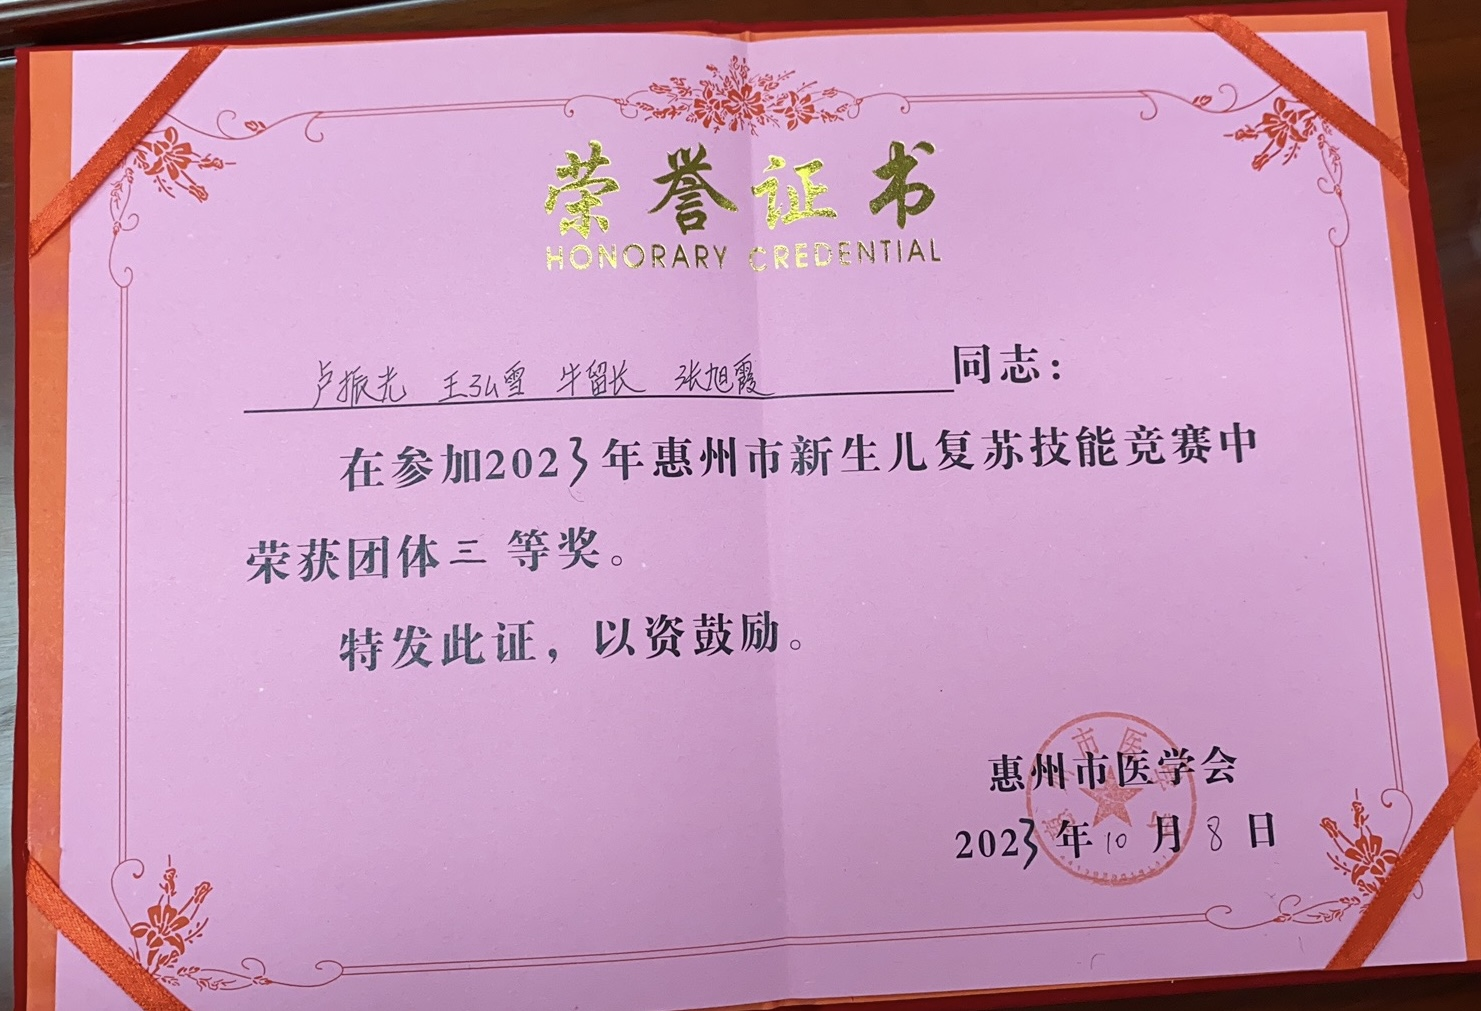 荣誉证书
HONORARY CREDENTIAL
卢振光 王弘雪 牛留长 张旭霞 同志：
在参加2023年惠州市新生儿复苏技能竞赛中
荣获团体三等奖。
特发此证，以资鼓励。
惠州市医学会
2023年10月8日